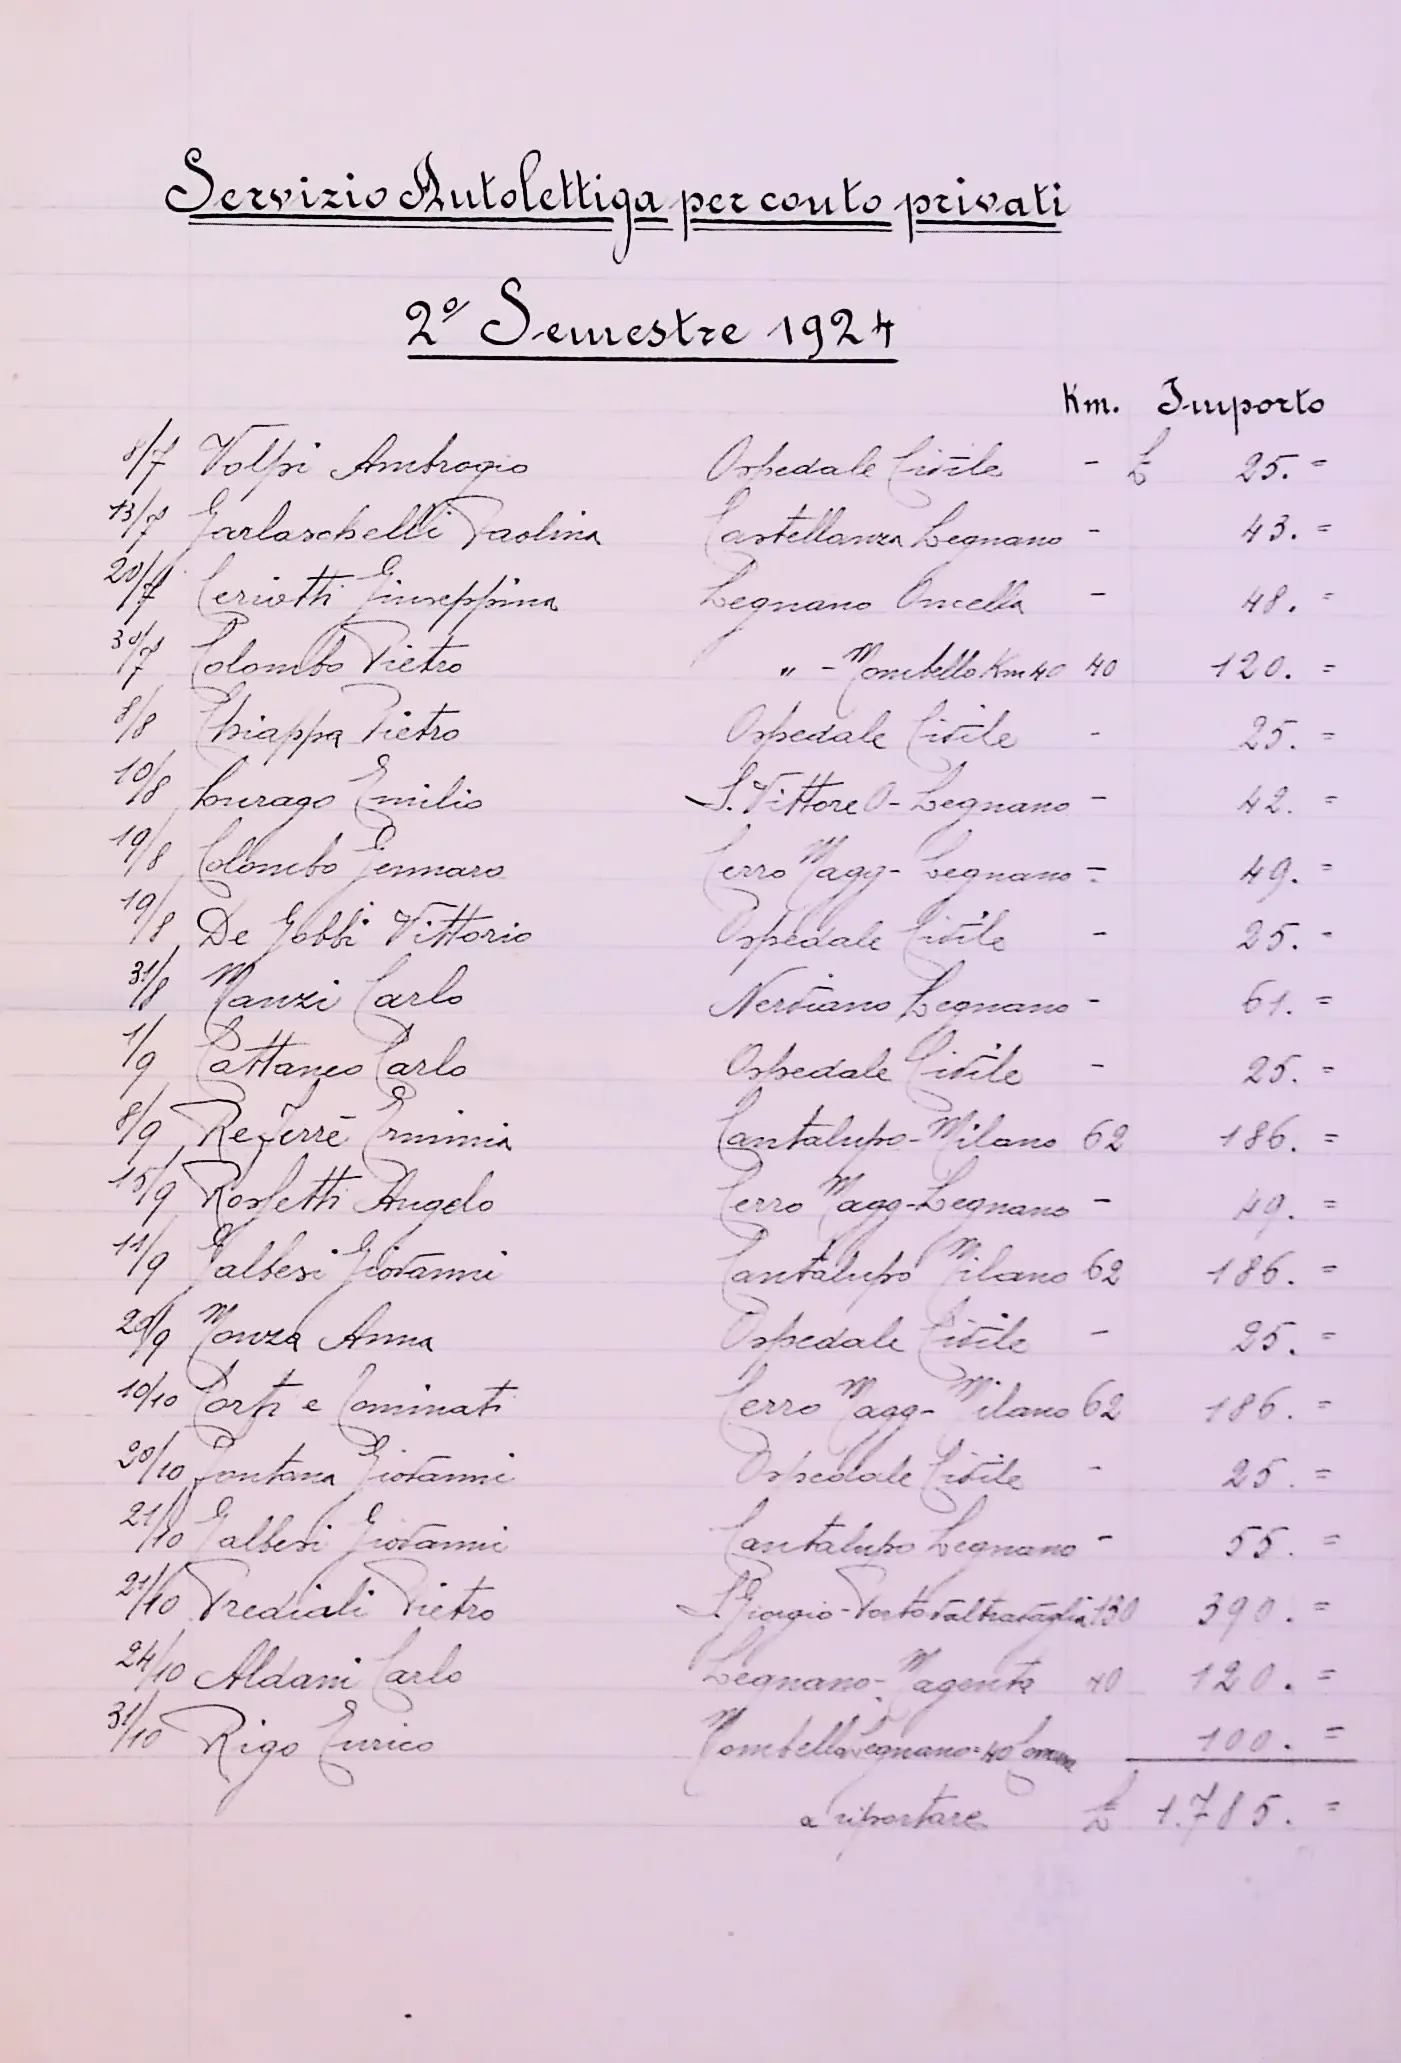 Servizio Autolettiga per conto privati
2º Semestre 1924
Km. Importo
8/7 Volpi Ambrogio Ospedale Civile - £ 25.=
13/7 Garlaschelli Paolina Castellanza Legnano - 43.=
20/7 Ceriotti Giuseppina Legnano Oncella - 48.=
30/7 Colombo Pietro " - Mombello Km 40 40 120.=
8/8 Chiappa Pietro Ospedale Civile - 25.=
10/8 Lurago Emilio S. Vittore O- Legnano - 42.=
19/8 Colombo Gennaro Cerro Magg- Legnano - 49.=
19/8 De Gobbi Vittorio Ospedale Civile - 25.=
31/8 Manzi Carlo Nerviano Legnano - 61.=
1/9 Cattaneo Carlo Ospedale Civile - 25.=
8/9 Re Ferrè Erminia Cantalupo-Milano 62 186.=
15/9 Rossetti Angelo Cerro Magg-Legnano - 49.=
11/9 Galbesi Giovanni Cantalupo Milano 62 186.=
29/9 Monza Anna Ospedale Civile - 25.=
10/10 Corti e Cominati Cerro Magg- Milano 62 186.=
20/10 Fontana Giovanni Ospedale Civile - 25.=
21/10 Galbesi Giovanni Cantalupo Legnano - 55.=
21/10 Prediali Pietro S. Giorgio-Porto Valtravaglia 130 390.=
24/10 Aldani Carlo Legnano-Magenta 40 120.=
31/10 Rigo Enrico Mombello Legnano = 40 100.=
a riportare £ 1.785.=